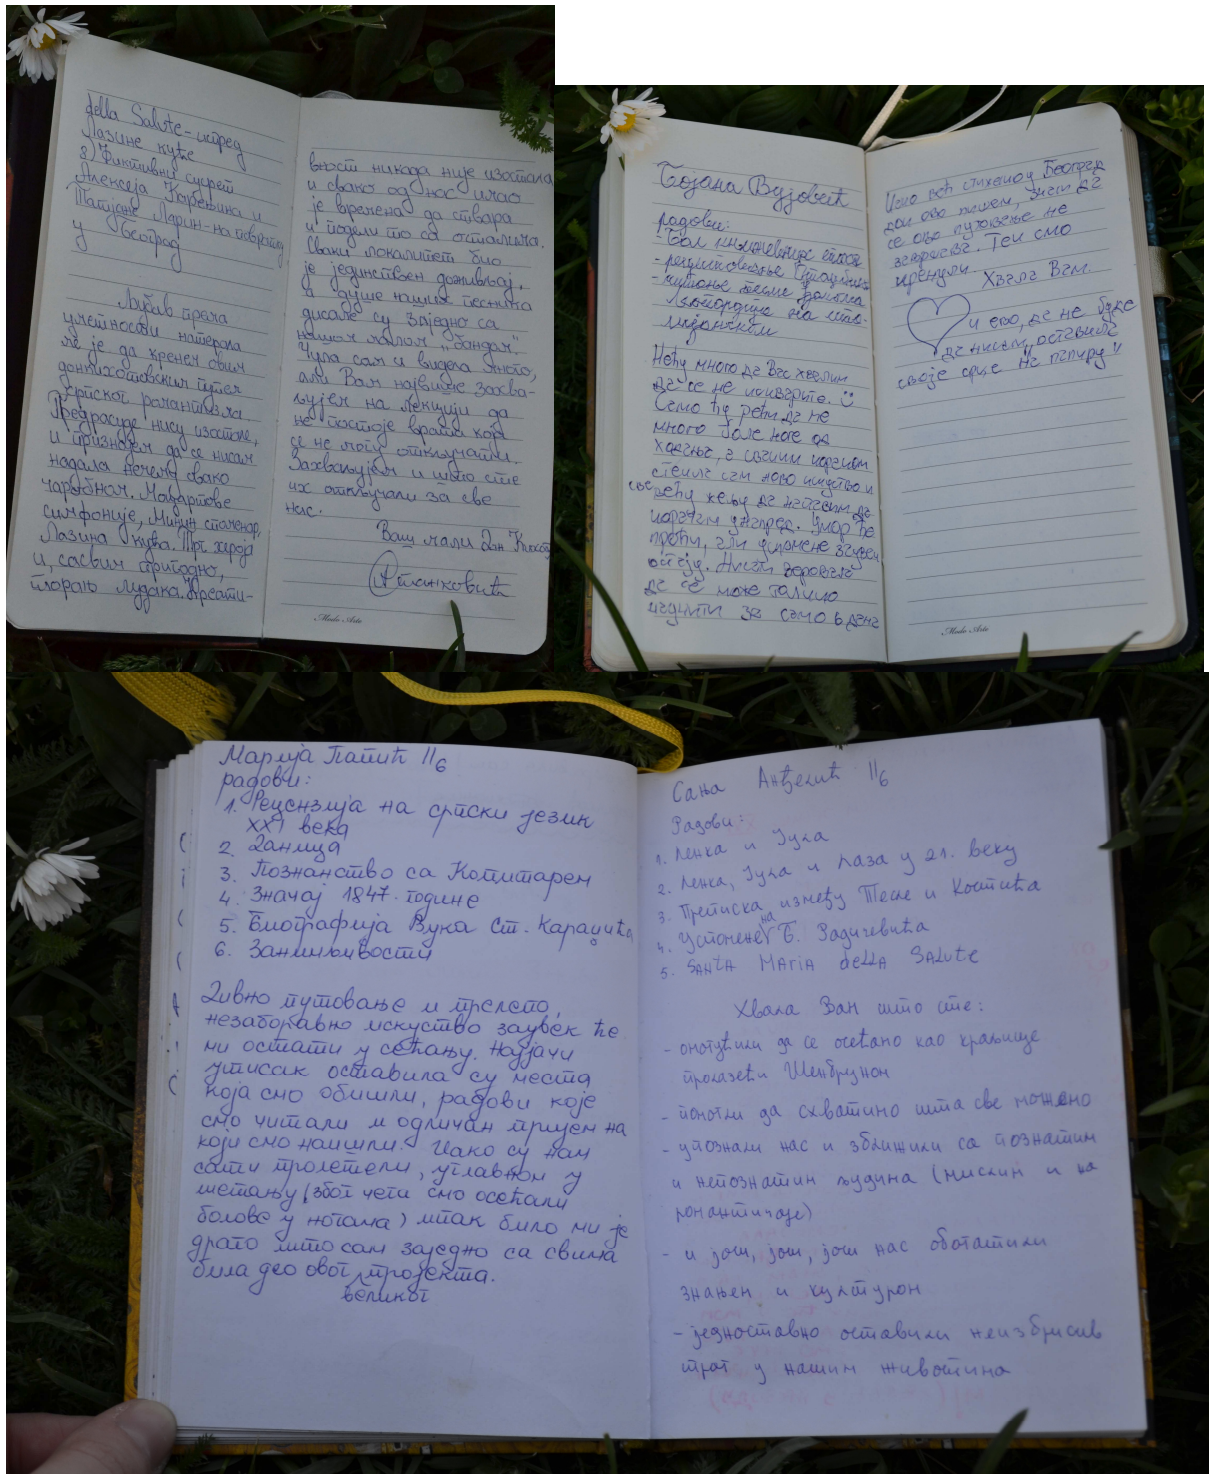 della Salute - испред
Лазине куће
3) Фиктивни сусрет
Алексеја Карењина и
Татјане Ларин - на повратку
у Београд
Љубав према
уметности натерала
ме је да кренем овим
донкихотовским путем
српског романтизма
Предрасуде нису изостале,
и признајем да се нисам
надала нечему овако
чаробном. Моцартове
симфоније, Минин споменар,
Лазина кућа. Трг хероја
и, сасвим природно,
торањ лудака. Креати-
вност никада није изостала
и свако од нас имао
је времена да ствара
и подели то са осталима.
Сваки локалитет био
је јединствен доживљај,
а душе наших песника
дисале су заједно са
нашом малом „бандом“.
Чула сам и видела много,
али Вам највише захва-
љујем на лекцији да
не постоје врата која
се не могу откључати.
Захваљујем и што сте
их откључали за све
нас.
Ваш мали Дон Кихот
Mode Arte
Бојана Вујовић
радови:
- Бол
- рецитовање
- читање песме
на
Нећу много да Вас хвалим
да се не покварите. ☺
Само ћу рећи да не
много боле ноге од
ходања, а сваким кораком
стекла сам ново искуство и
све већу жељу да наставим да
корачам унапред. Умор ће
проћи, али успомене заувек
остају. Нисам веровала
да се може толико
научити за само 6 дана
Иако већ стижемо у Београд
док ово пишем, знам да
се ово путовање не
завршава. Тек смо
кренули. Хвала Вам.
и ево, да не буде
да нисам „оставила
своје срце на папиру“
Mode Arte
Марија Папић II6
радови:
1. Рецензија на српски језик
XXI века
2. Даница
3. Познанство са Копитарем
4. Значај 1847. године
5. Биографија Вука Ст. Караџића
6. Занимљивости
Дивно путовање и прелепо,
незаборавно искуство заувек ће
ми остати у сећању. Најјачи
утисак оставила су места
која смо обишли, радови које
смо читали и одличан пријем на
који смо наишли. Иако су нам
сати пролетели, углавном у
шетању (због чега смо осећали
болове у ногама) ипак било ми је
драго што сам заједно са свима
била део овог великог пројекта.
Сања Анђелић II6
Радови:
1. Ленка и Јула
2. Ленка, Јула и Лаза у 21. веку
3. Преписка између Тесле и Костића
4. Успомене на Б. Радичевића
5. SANTA MAriA dellA SAlute
Хвала Вам што сте:
- омогућили да се осећамо као краљице
пролазећи Шенбруном
- помогли да схватимо шта све можемо
- упознали нас и зближили са познатим
и непознатим људима (мислим и на
романтичаре)
- и још, још, још нас обогатили
знањем и културом
- једноставно оставили неизбрисив
траг у нашим животима